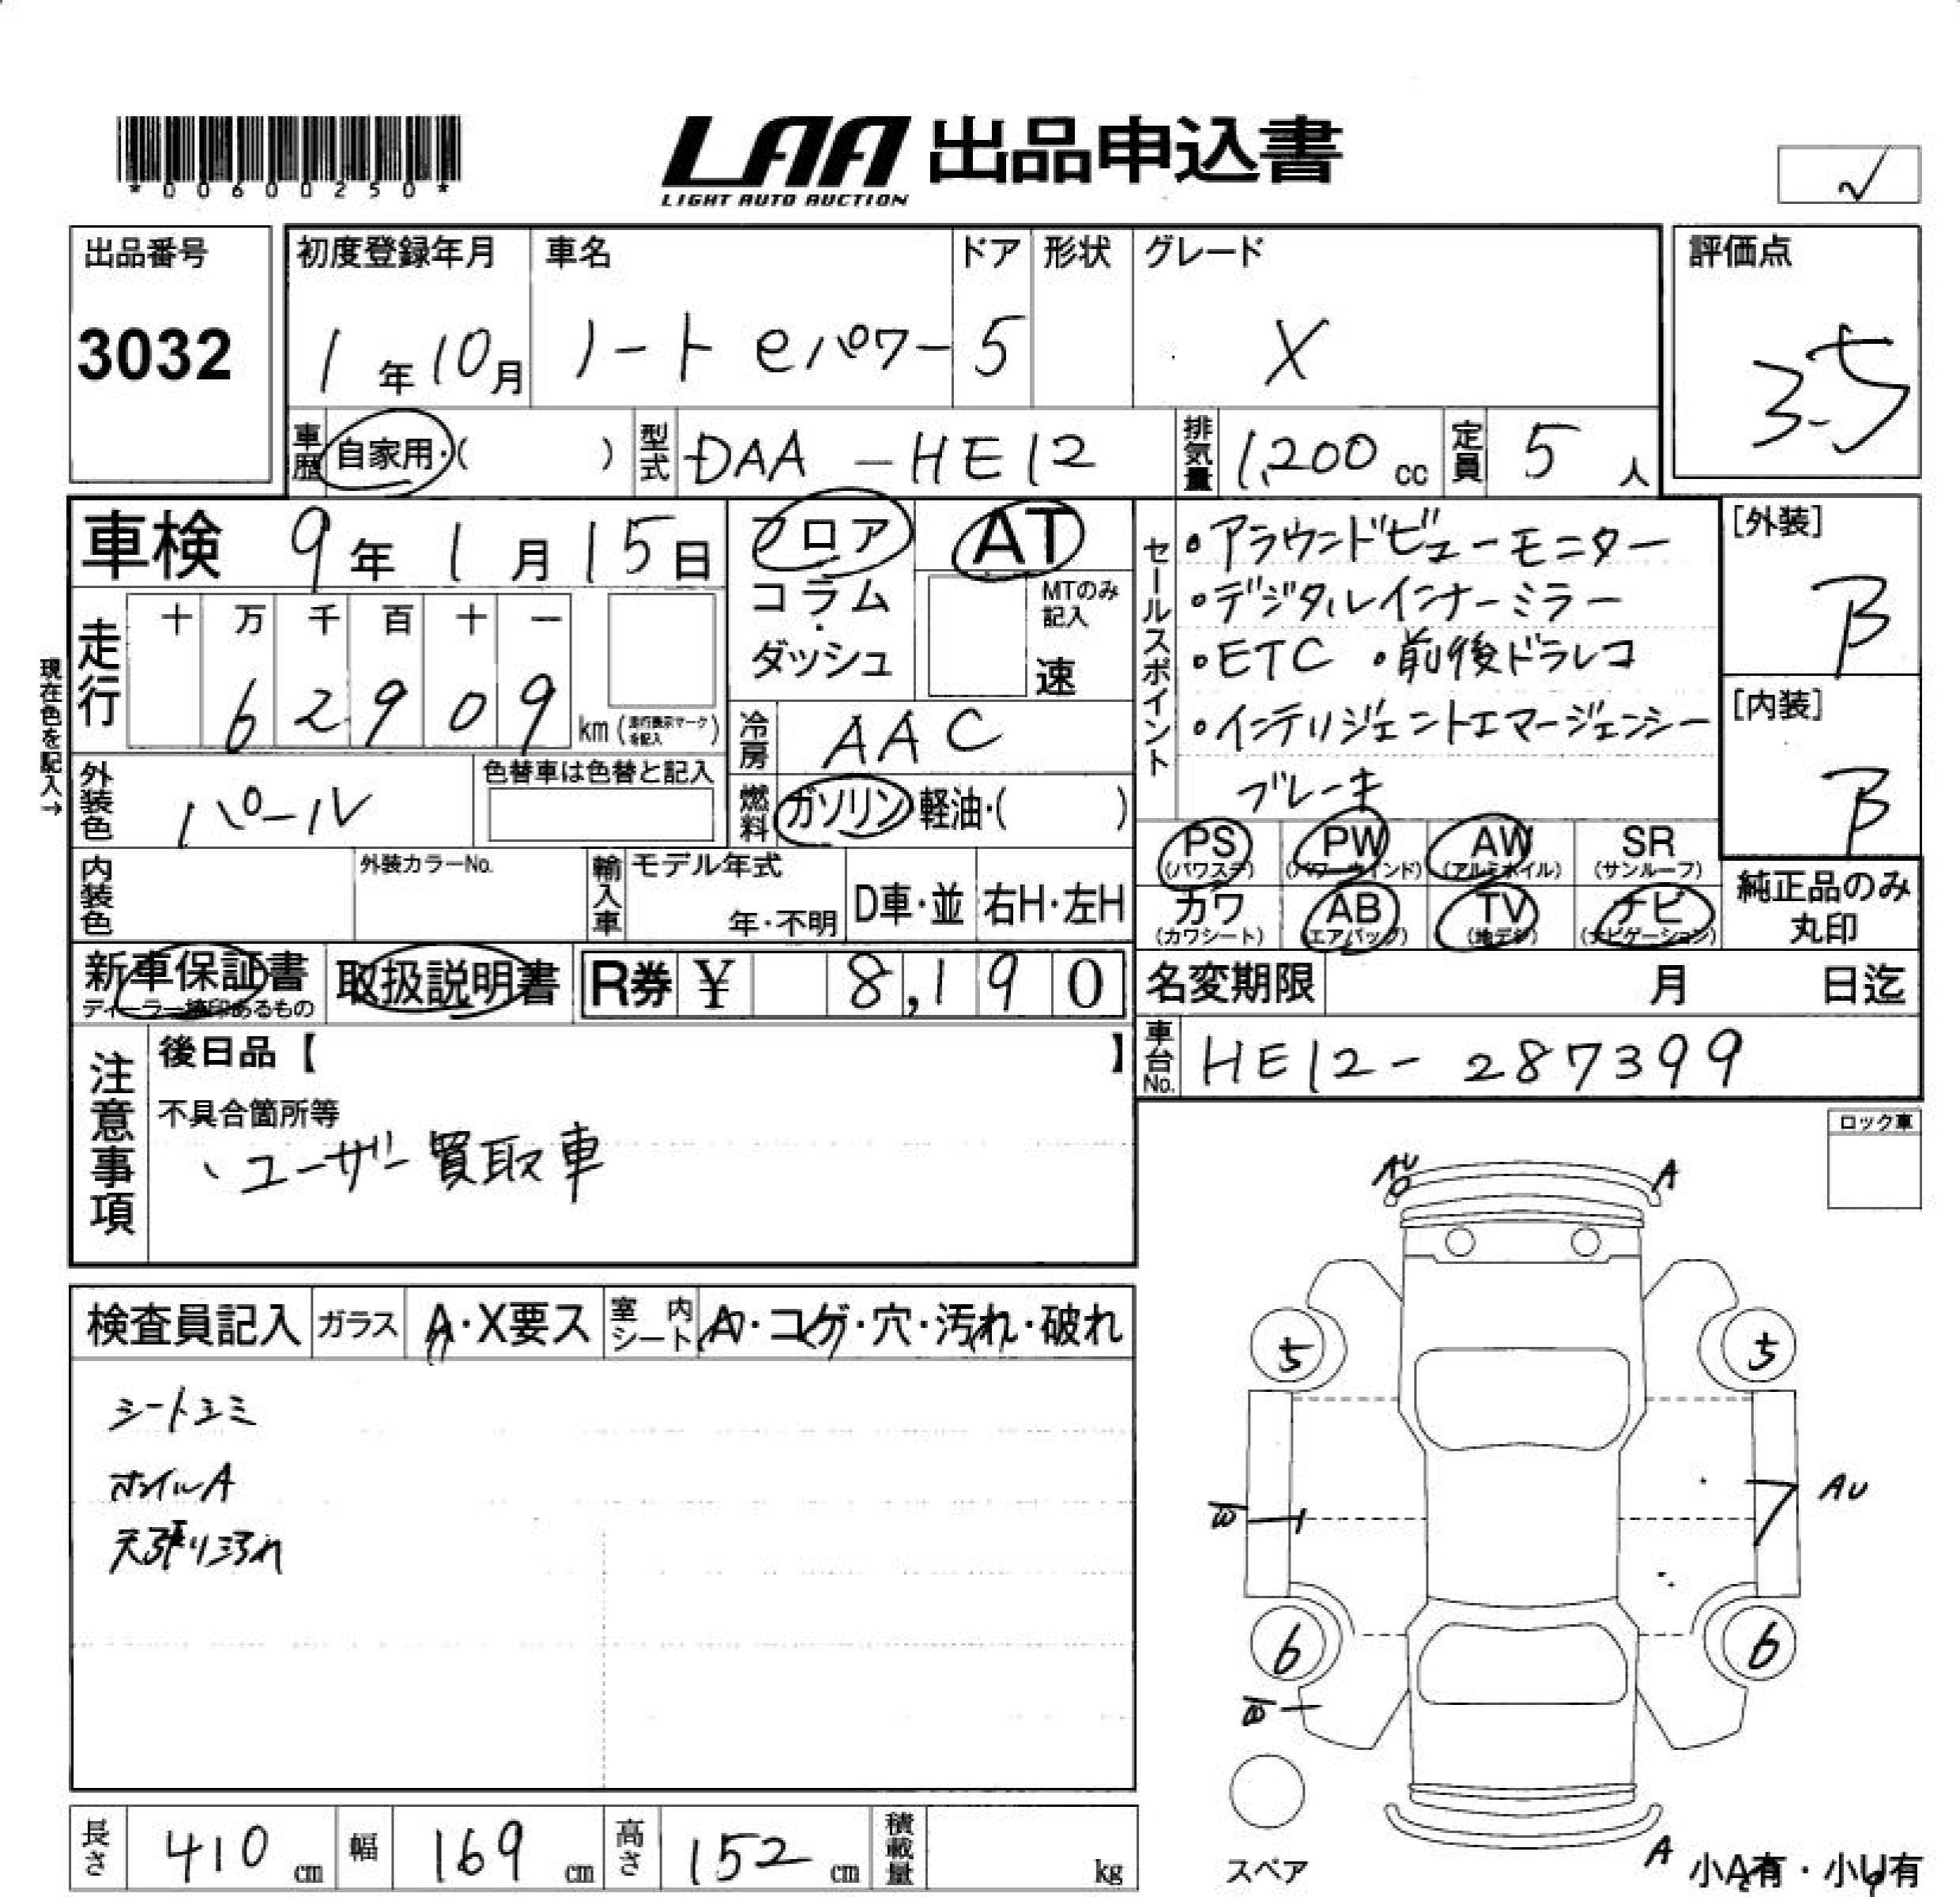 *00600250*
LAA 出品申込書
LIGHT AUTO AUCTION
√
出品番号
3032
初度登録年月
1年10月
車名
ノート eパワー
ドア
5
形状
グレード
X
評価点
3.5
車歴 自家用・( )
型式 DAA-HE12
排気量 1,200cc
定員 5人
車検 9年1月15日
フロア
コラム
・
ダッシュ
AT
MTのみ
記入
速
セールスポイント
・アラウンドビューモニター
・デジタルインナーミラー
・ETC ・前後ドラレコ
・インテリジェントエマージェンシー
ブレーキ
[外装]
B
[内装]
B
現在色を記入→
走行
十 万 千 百 十 一
6 2 9 0 9
km (走行表示マークを記入)
冷房 AAC
外装色 パール
色替車は色替と記入
燃料 ガソリン 軽油・( )
PS (パワステ)
PW (パワーウインド)
AW (アルミホイル)
SR (サンルーフ)
カワ (カワシート)
AB (エアバッグ)
TV (地デジ)
ナビ (ナビゲーション)
純正品のみ
丸印
内装色
外装カラーNo.
輸入車
モデル年式
年・不明
D車・並
右H・左H
新車保証書
ディーラー捺印あるもの
取扱説明書
R券 ¥ 8,190
名変期限 月 日迄
車台No. HE12-287399
注意事項
後日品【 】
不具合箇所等
、ユーザー買取車
ロック車
検査員記入
ガラス
A・X要ス
室内シート
A・コゲ・穴・汚れ・破れ
シートシミ
ホイルA
天張り汚れ
AU
A
5
5
AU
W
6
6
W
スペア
A
小A有・小U有
長さ 410cm
幅 169cm
高さ 152cm
積載量 kg